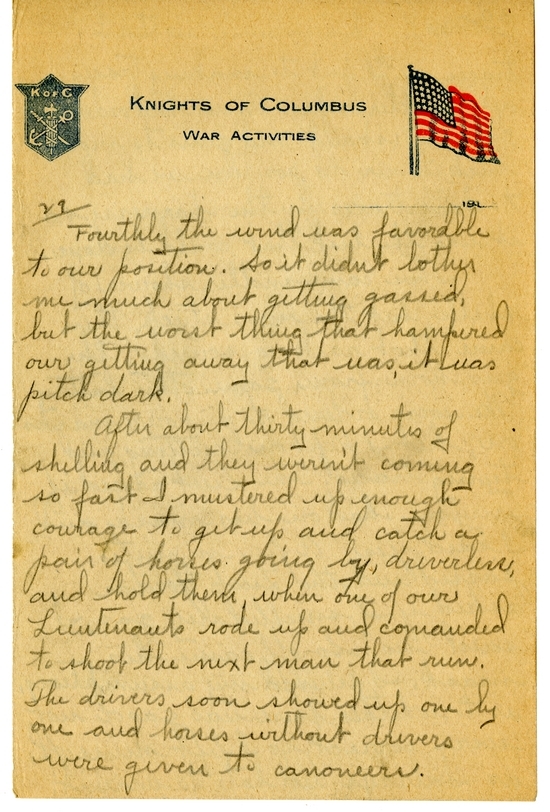 K of C
KNIGHTS OF COLUMBUS
WAR ACTIVITIES
191
29
Fourthly the wind was favorable
to our position. So it didn't bother
me much about getting gassed,
but the worst thing that hampered
our getting away that was, it was
pitch dark.
After about thirty minutes of
shelling and they weren't coming
so fast I mustered up enough
courage to get up and catch a
pair of horses going by, driverless,
and hold them, when one of our
Lieutenants rode up and comanded
to shoot the next man that run.
The drivers soon showed up one by
one and horses without drivers
were given to canoneers.